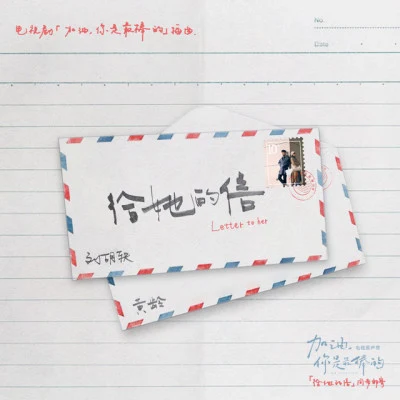 电视剧「加油,你是最棒的」插曲
No:
Date
给她的信
Letter to her
刘明轶
黄龄
加油,
你是最棒的
「给她的信」同步邮寄